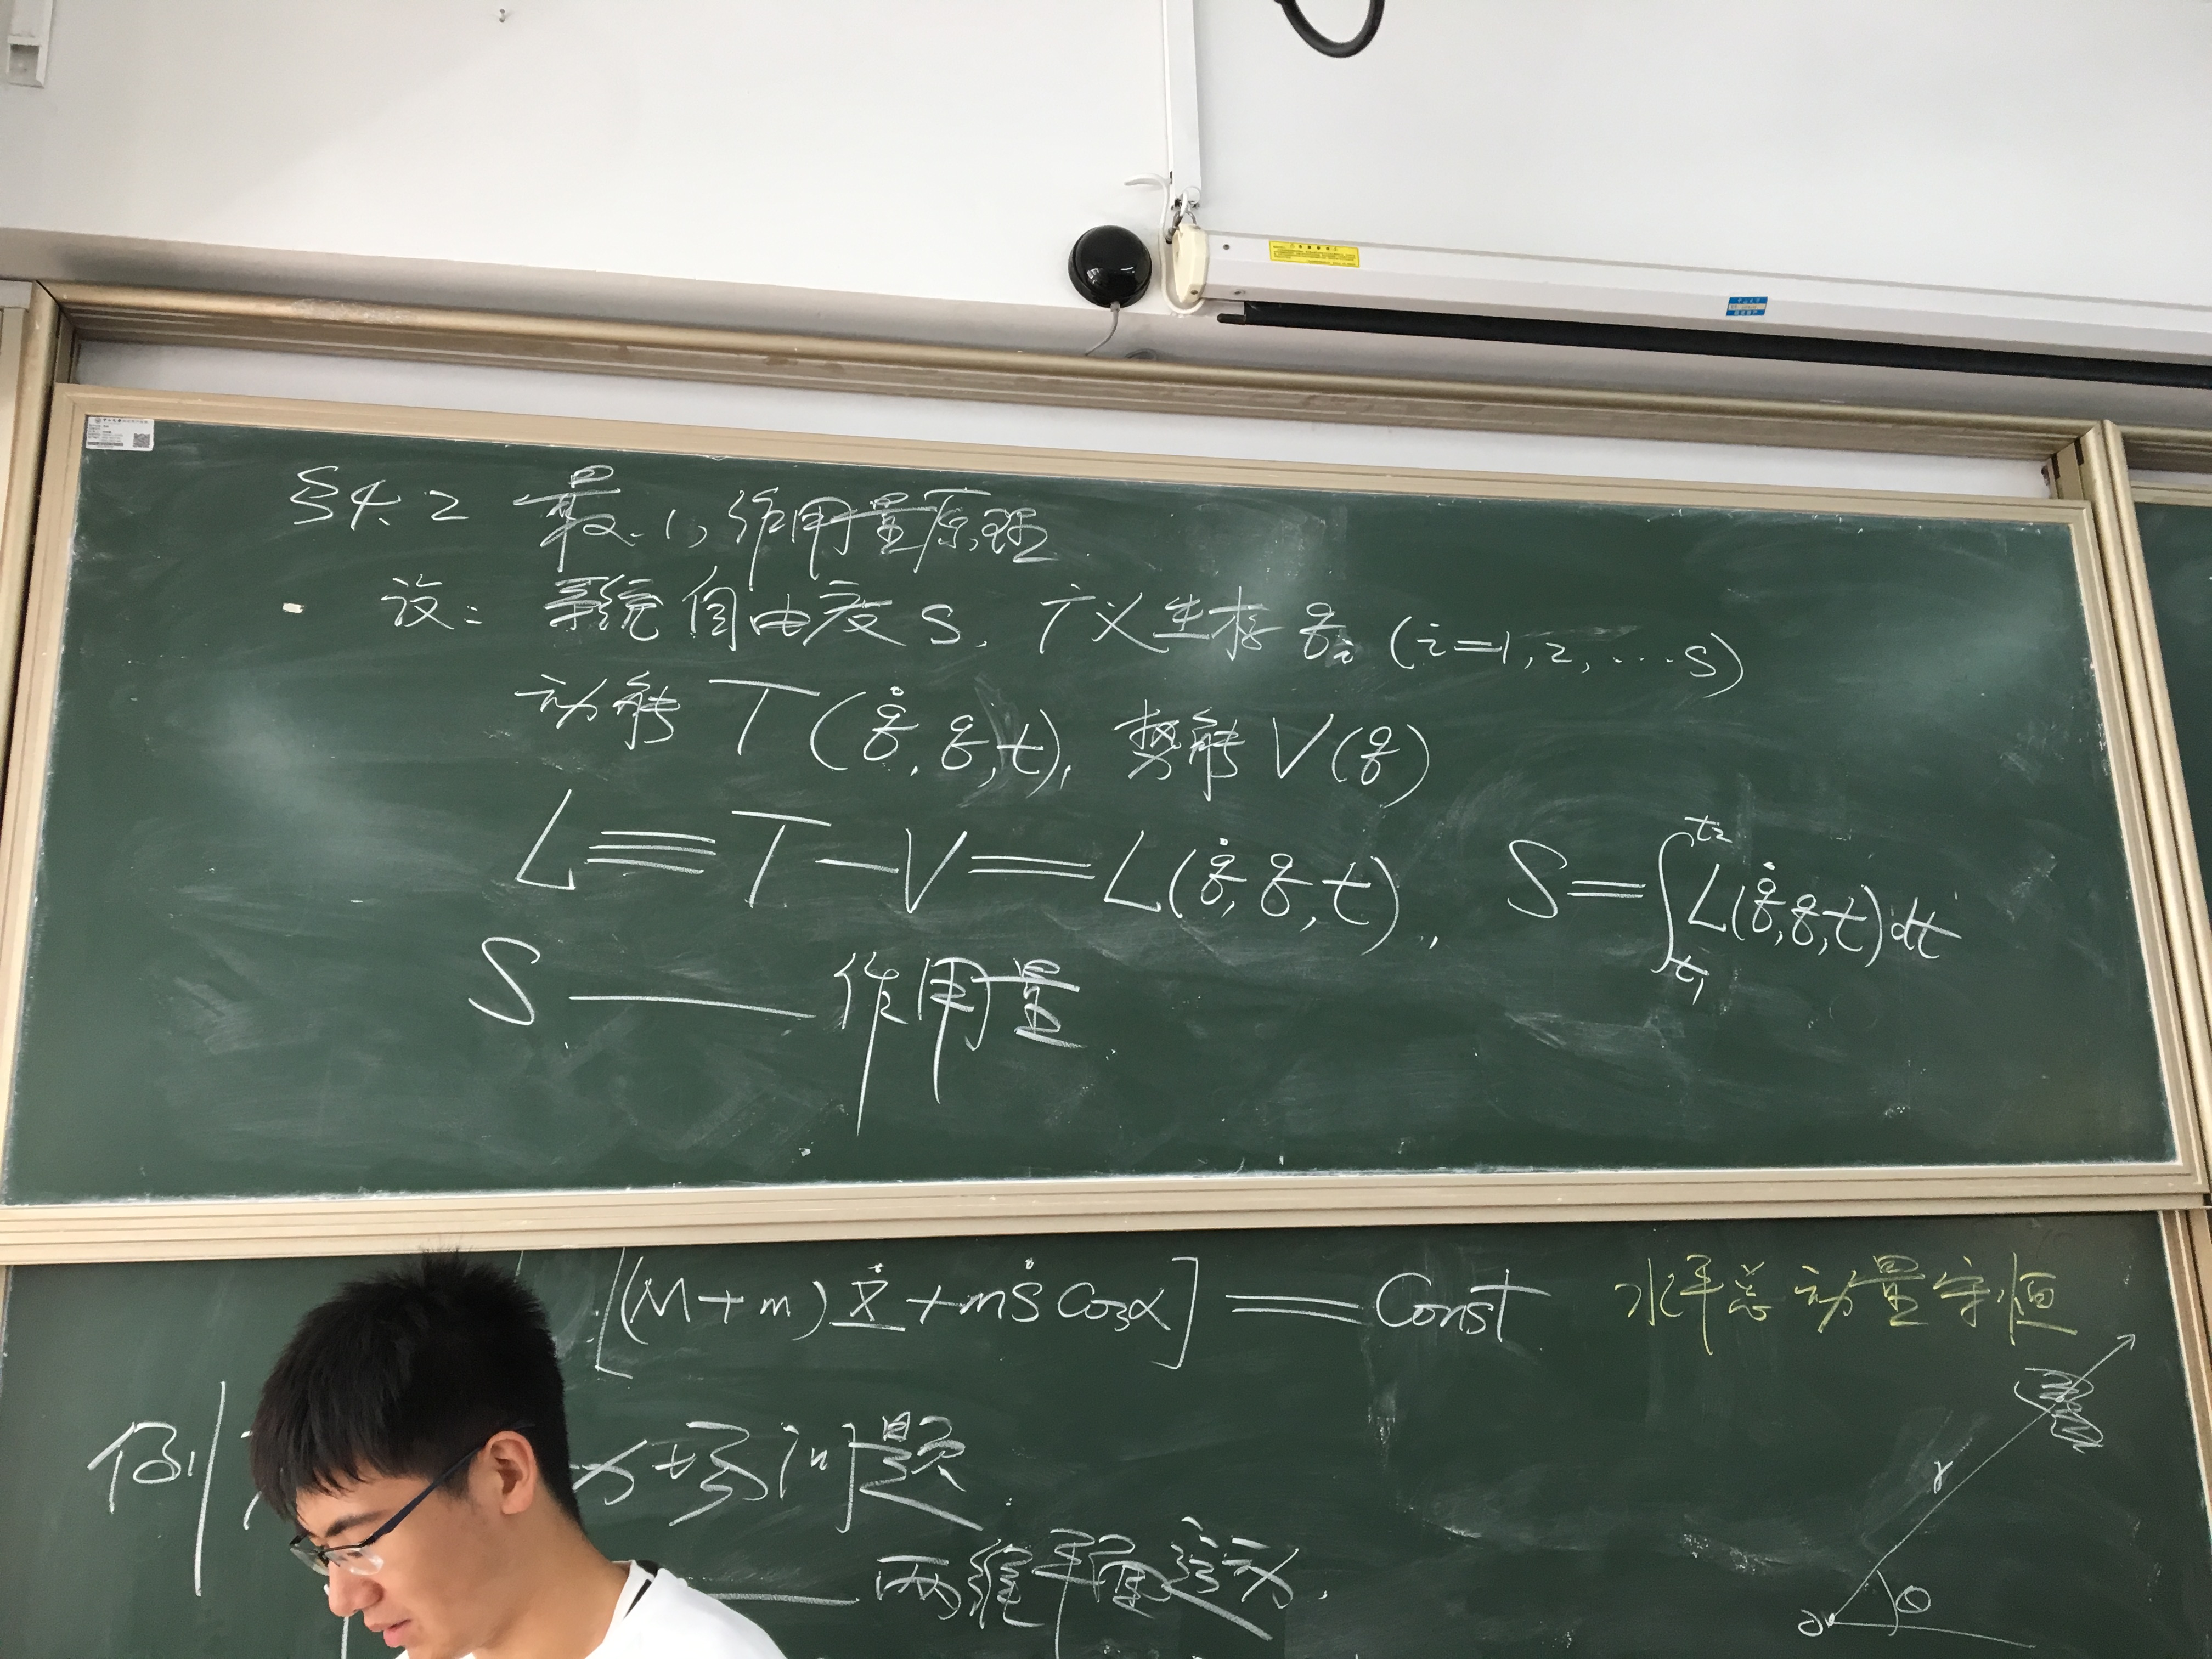 §4.2 最小作用量原理
设: 系统自由度 S, 广义坐标 qᵢ (i=1,2,…S)
动能 T(q̇,q,t), 势能 V(q)
L≡T−V=L(q̇,q,t), S=∫_{t₁}^{t₂} L(q̇,q,t)dt
S —— 作用量
[(M+m)Ẋ+mṡ cosα] = Const 水平总动量守恒
例 场问题
—— 两维平面运动.
r
θ
O